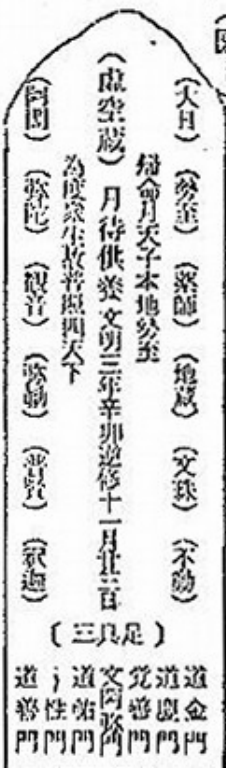 (大日)(勢至)(薬師)(地蔵)(文珠)(不動)
帰命月天子本地勢至
(虚空蔵)月待供養文明三年辛卯逆修十一月廿三日
為度衆生故普照四天下
(阿閦)(弥陀)(観音)(弥勒)(普賢)(釈迦)
〔三具足〕
道金門
道慶門
善門
道祐門
性門
道善門